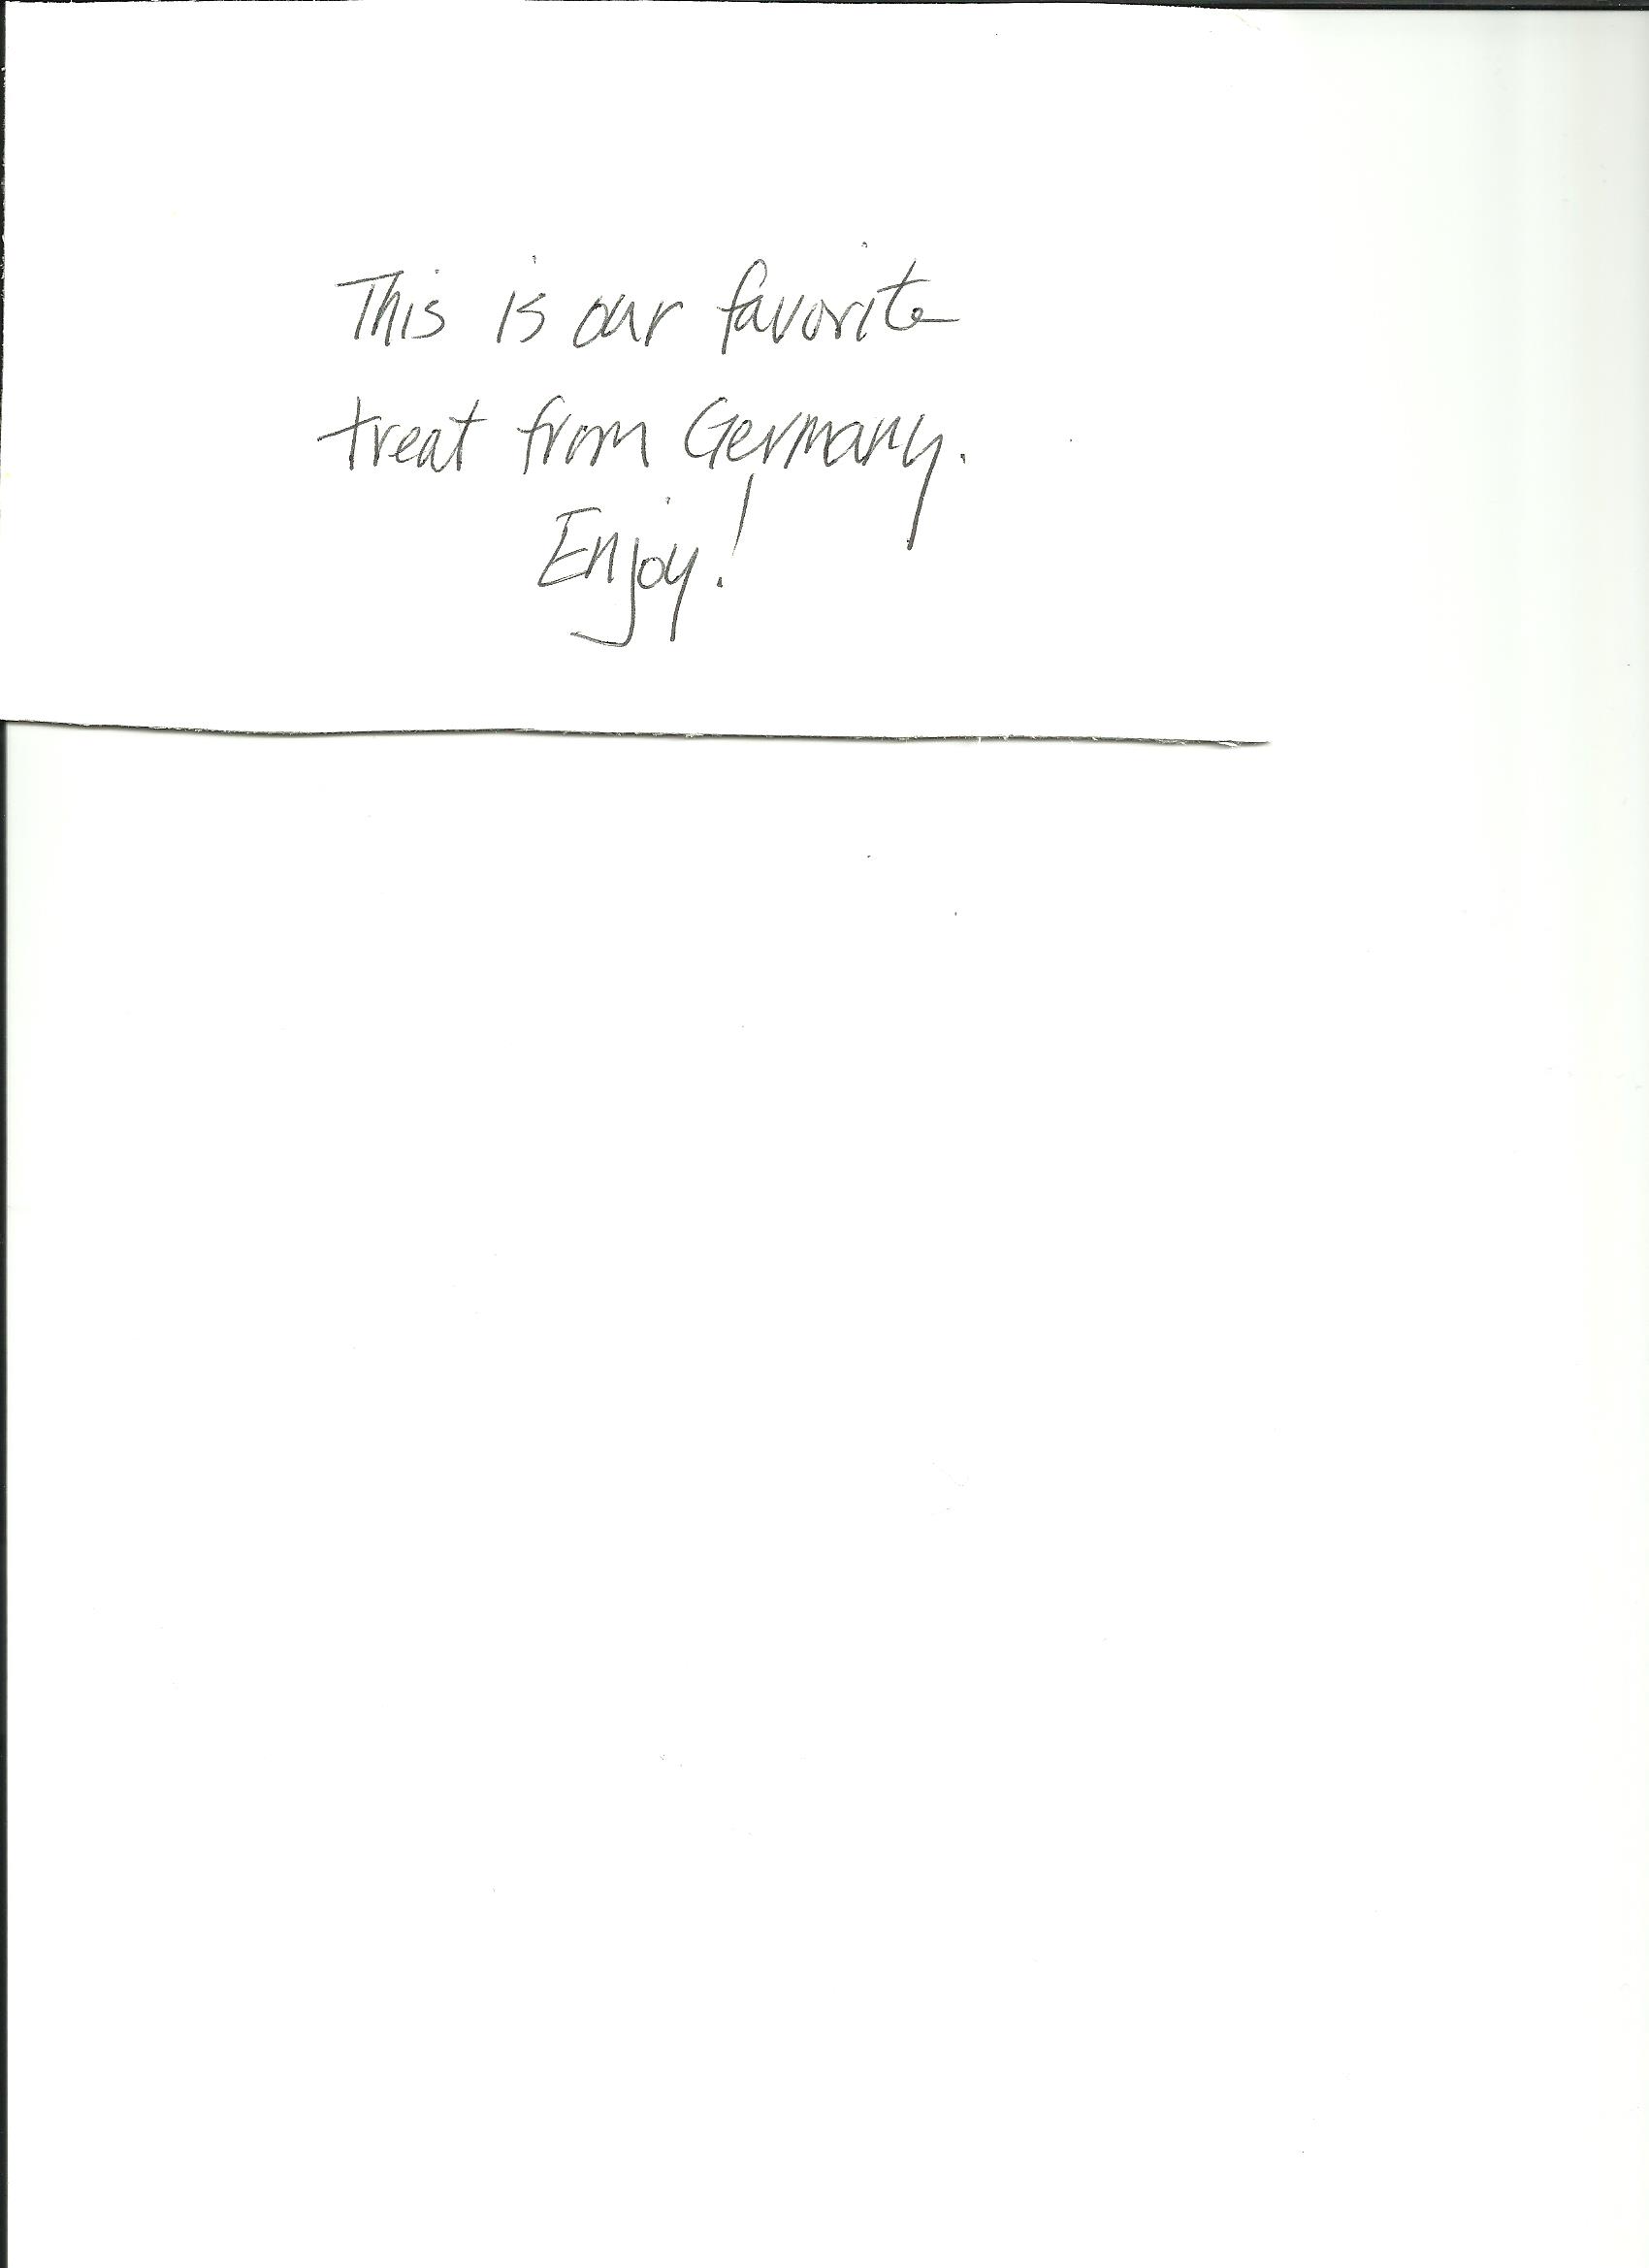 This is our favorite
treat from Germany.
Enjoy!